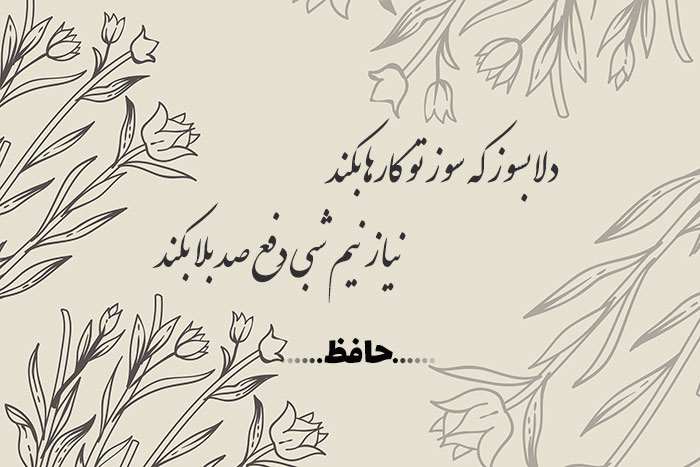 دلا بسوز که سوز تو کارها بکند
نیاز نیم شبی دفع صد بلا بکند
......حافظ......